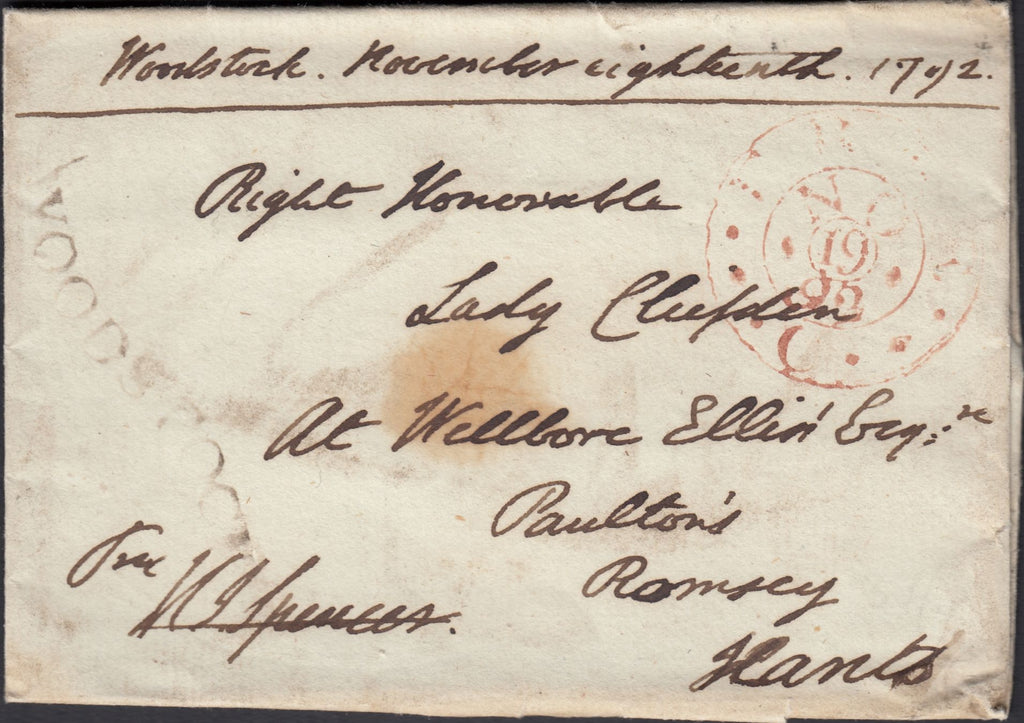 Woodstock. November eighteenth. 1792.
Right Honorable
Lady Clifden
At Wellbore Ellis' Esq:re
Paulton's
Romsey
Hants
Free
Spencer.
WOODSTOCK
NO
19
C